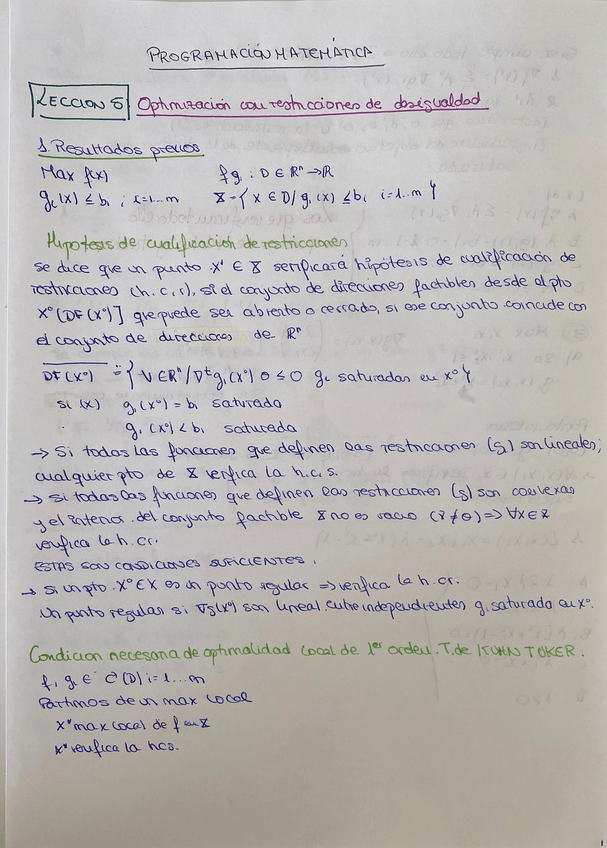 PROGRAMACIÓN MATEMÁTICA
LECCION 5 Optimización con restricciones de desigualdad
1. Resultados previos
Max f(x) f gi : D ∈ ℝⁿ → ℝ
gi (x) ≤ bi i i=1...m X = { x ∈ D / gi (x) ≤ bi i=1...m }
Hipotesis de cualificación de restricciones
se dice que un punto X⁰ ∈ X verificará hipótesis de cualificación de
restricciones (h.c.r), si el conjunto de direcciones factibles desde el pto
X⁰ [DF(X⁰)] que puede ser abierto o cerrado, si ese conjunto coincide con
el conjunto de direcciones de ℝⁿ
DF(X⁰) = { V ∈ ℝⁿ / ∇ᵗgi (x⁰) υ ≤ 0 gi saturadas en x⁰ }
si (x) gi (x⁰) = bi saturada
gi (x⁰) < bi saturada
→ Si todas las funciones que definen las restricciones (gi) son lineales,
cualquier pto de X verifica la h.c.s.
→ si todas las funciones que definen las restricciones (g) son convexas
y el interior del conjunto factible X no es vacio (X ≠ ∅) => ∀x ∈ X
verifica la h.cr.
ESTAS SON CONDICIONES SUFICIENTES.
→ si un pto. X⁰ ∈ X es un punto regular => verifica la h.cr.
Un punto regular si ∇g(x⁰) son lineal. entre independientes gi saturada en x⁰.
Condicion necesaria de optimalidad local de 1er orden. T. de KUHN TOKER.
f, gi ∈ C¹(D) i=1...m
Partimos de un max local
X⁰ max local de f en X
X⁰ verifica la hcs.